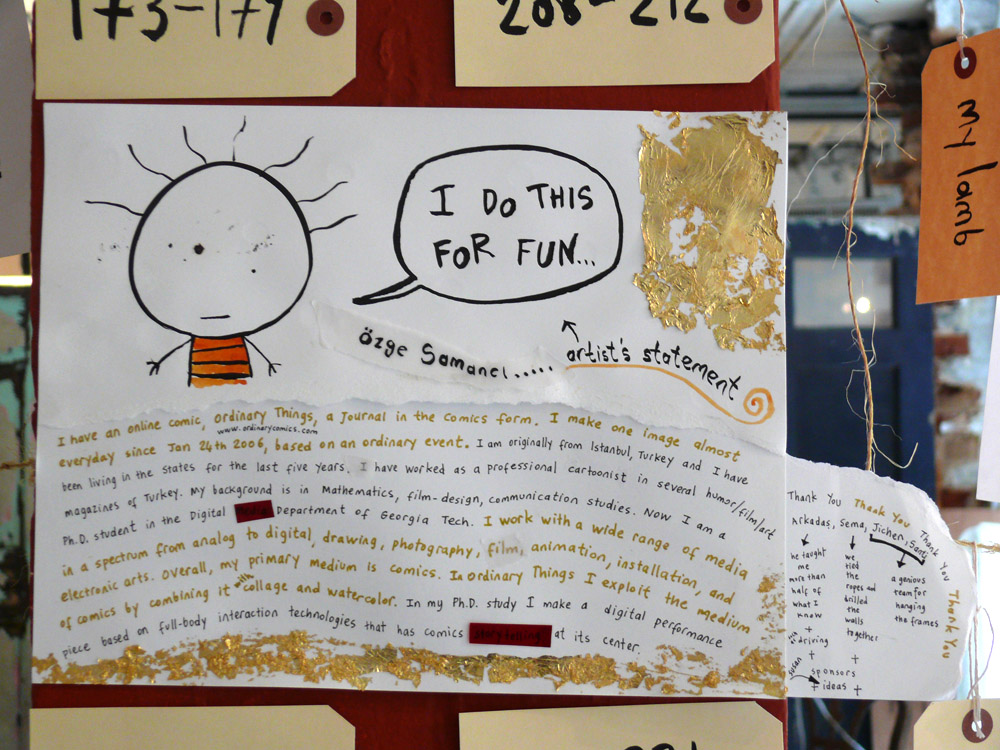 1+3-1+9
208-212
my lamb
I DO THIS
FOR FUN...
özge Samancı.....
artist's statement
I have an online comic, ordinary Things, a Journal in the comics form. I make one image almost
www.ordinarycomics.com
everyday since Jan 24th 2006, based on an ordinary event. I am originally from Istanbul, Turkey and I have
been living in the states for the last five years. I have worked as a professional cartoonist in several humor/film/art
magazines of Turkey. My background is in Mathematics, film-design, communication studies. Now I am a
Ph.D. student in the Digital Media Department of Georgia Tech. I work with a wide range of media
in a spectrum from analog to digital, drawing, photography, film, animation, installation, and
electronic arts. Overall, my primary medium is comics. In Ordinary Things I exploit the medium
of comics by combining it with collage and watercolor. In my Ph.D. study I make a digital performance
piece based on full-body interaction technologies that has comics storytelling at its center.
Thank You Thank You Thank You Thank You
Arkadas, Sema, Jichen, Santi
he taught
me
more than
half of
what I
know
+
driving
we
tied
the
ropes and
drilled
the
walls
together
+
a genious
team for
hanging
the frames
susan
+ sponsors
+ ideas +